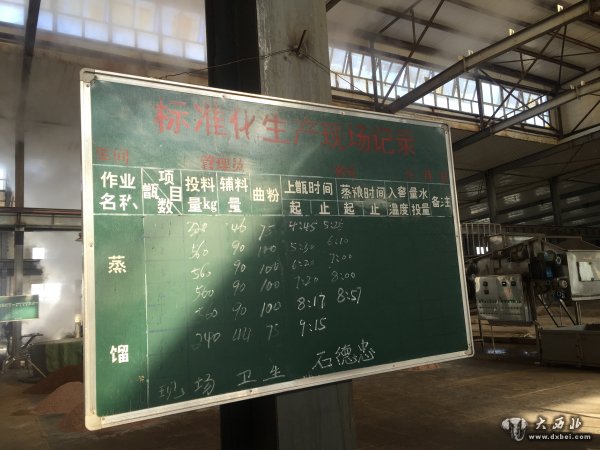 标准化生产现场记录
车间 管理员
作业名称 项目 甑数 投料量kg 辅料量 曲粉 上甑时间 起 止 蒸粮时间 起 止 入窖温度 量水投量 备注
蒸馏
46 75 4:45 5:25
560 90 100 5:30 6:10
560 90 100 6:20 7:00
560 90 100 7:20 8:00
90 100 8:17 8:57
240 44 75 9:15
现场卫生 石德忠
大西北
www.dxbei.com